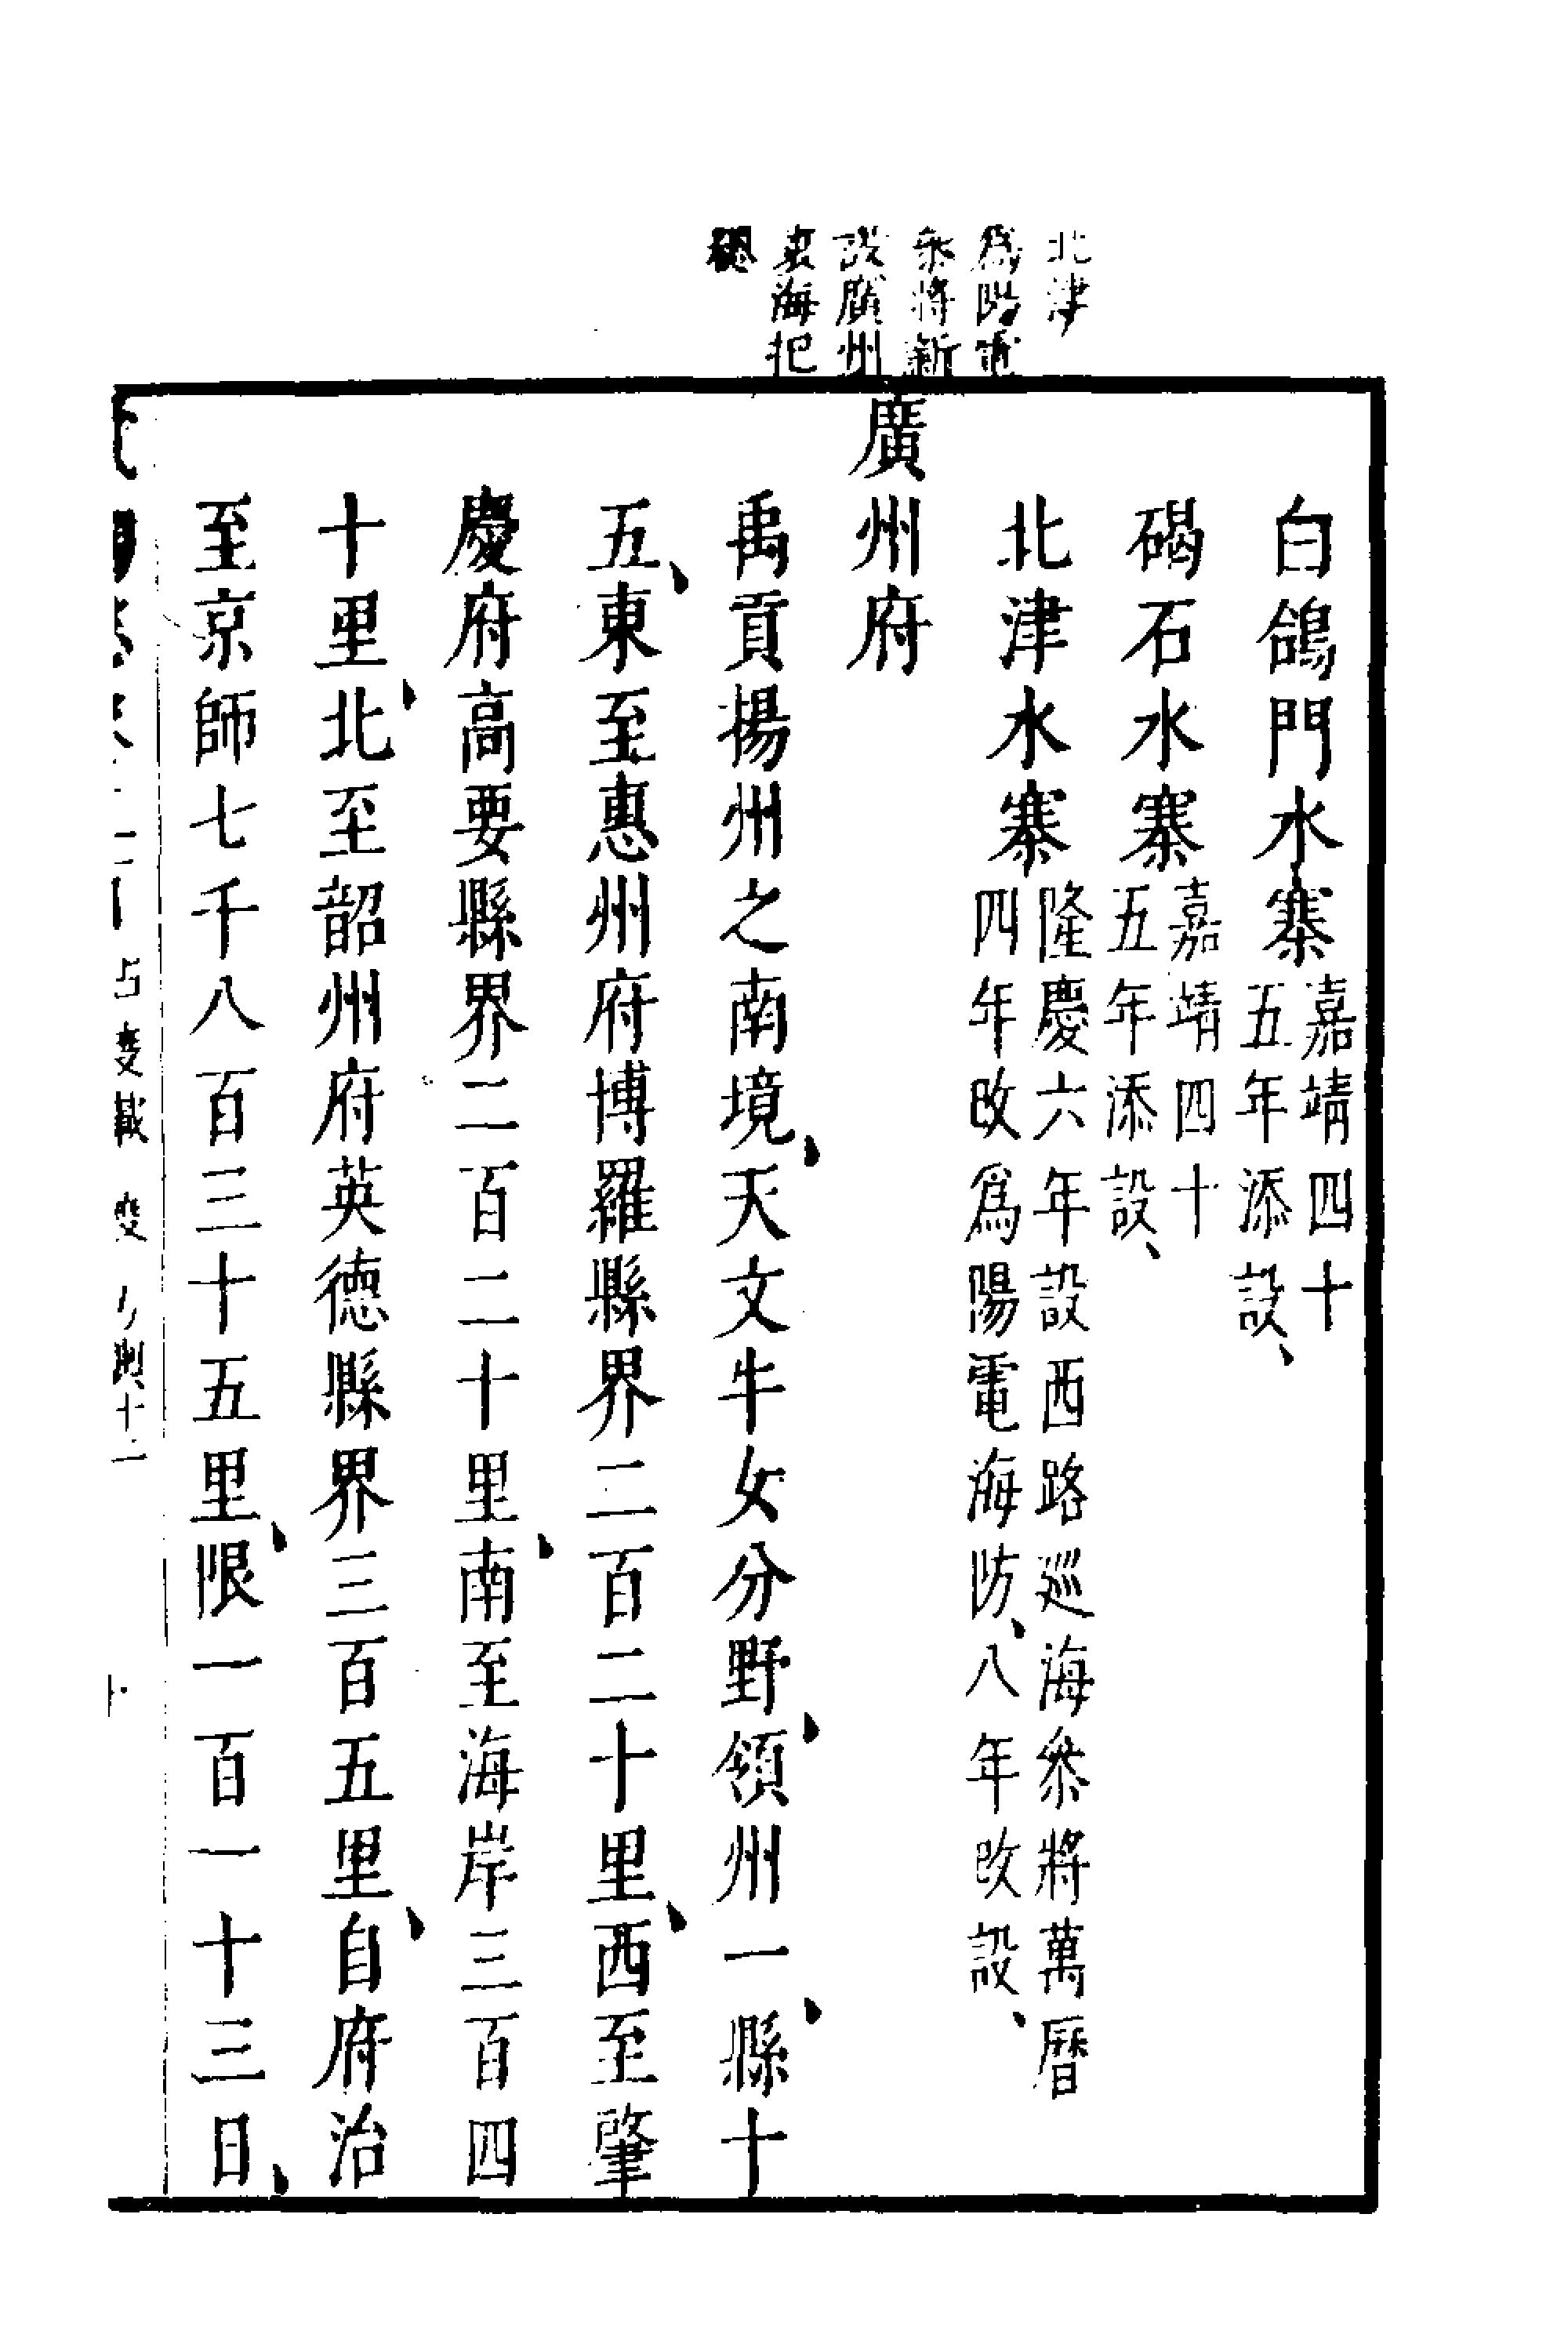 北津
爲陽電
叅將新
設廣州
海把
總
白鴿門水寨嘉靖四十
五年添設、
碣石水寨嘉靖四十
五年添設、
北津水寨隆慶六年設西路巡海叅將萬曆
四年改爲陽電海防、八年改設、
廣州府
禹貢揚州之南境、天文牛女分野、領州一、縣十
五、東至惠州府博羅縣界二百二十里、西至肇
慶府高要縣界二百二十里、南至海岸三百四
十里、北至韶州府英德縣界三百五里、自府治
至京師七千八百三十五里、限一百一十三日、